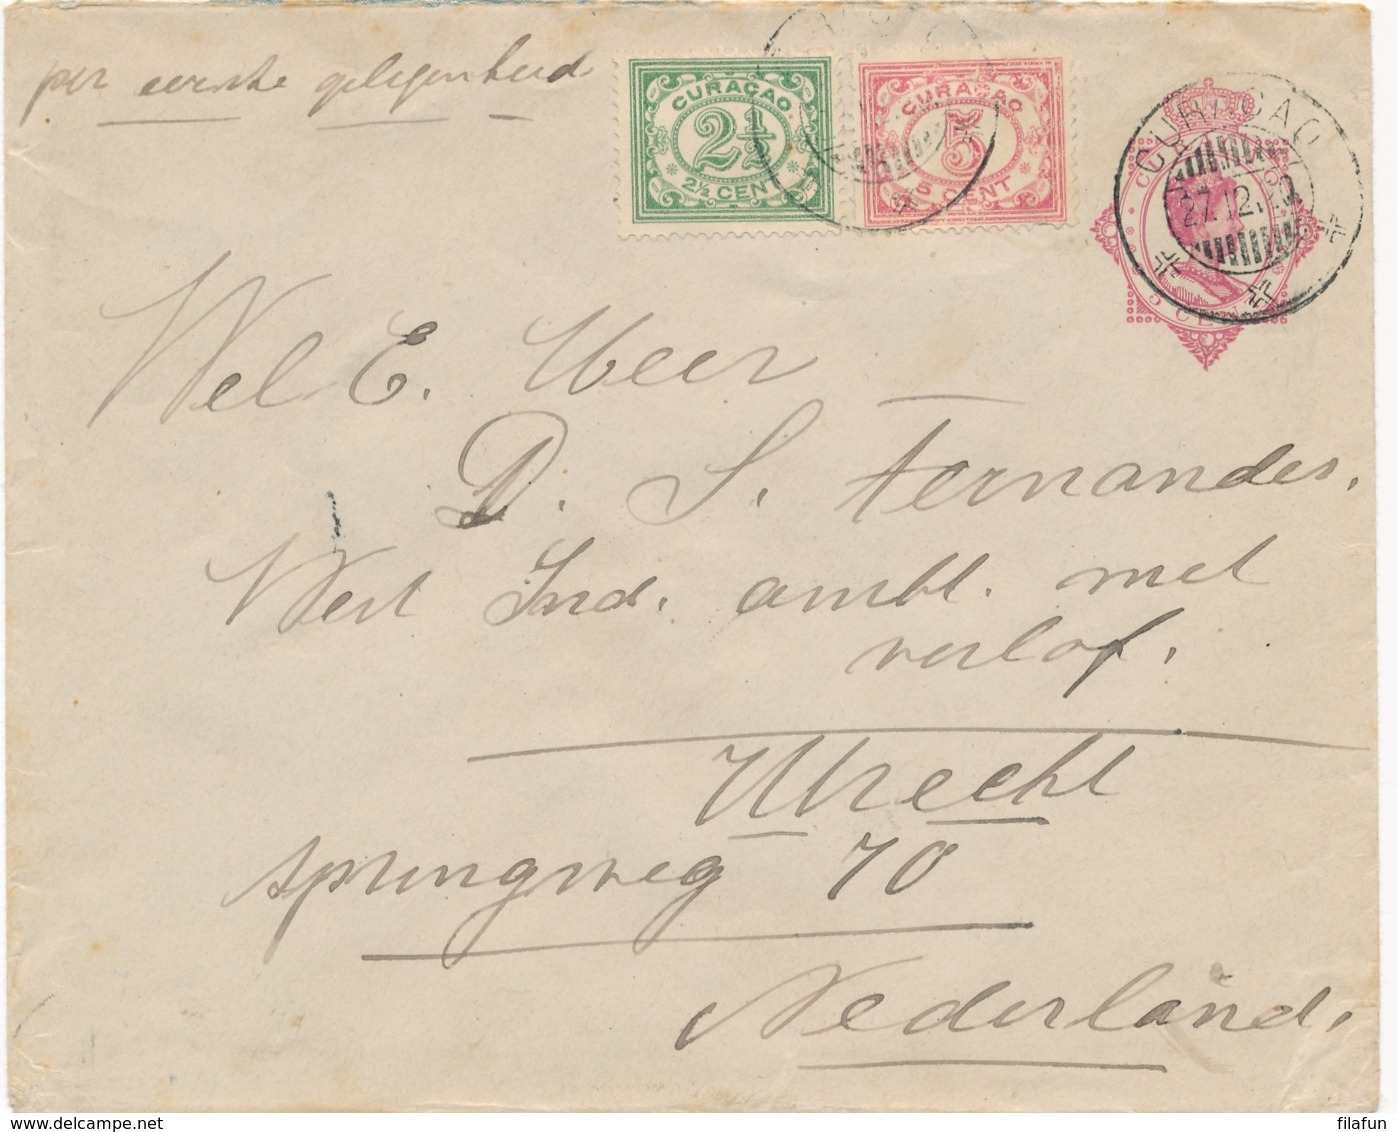 per eerste gelegenheid.
CURAÇAO
2½
2½ CENT
CURAÇAO
5
5 CENT
CURAÇAO
27.12.20
5 CENT
Wel E. Heer
D. S. Fernandes.
West Ind. ambt. met
verlof.
Utrecht
springweg 70
Nederland.
www.delcampe.net
filafun